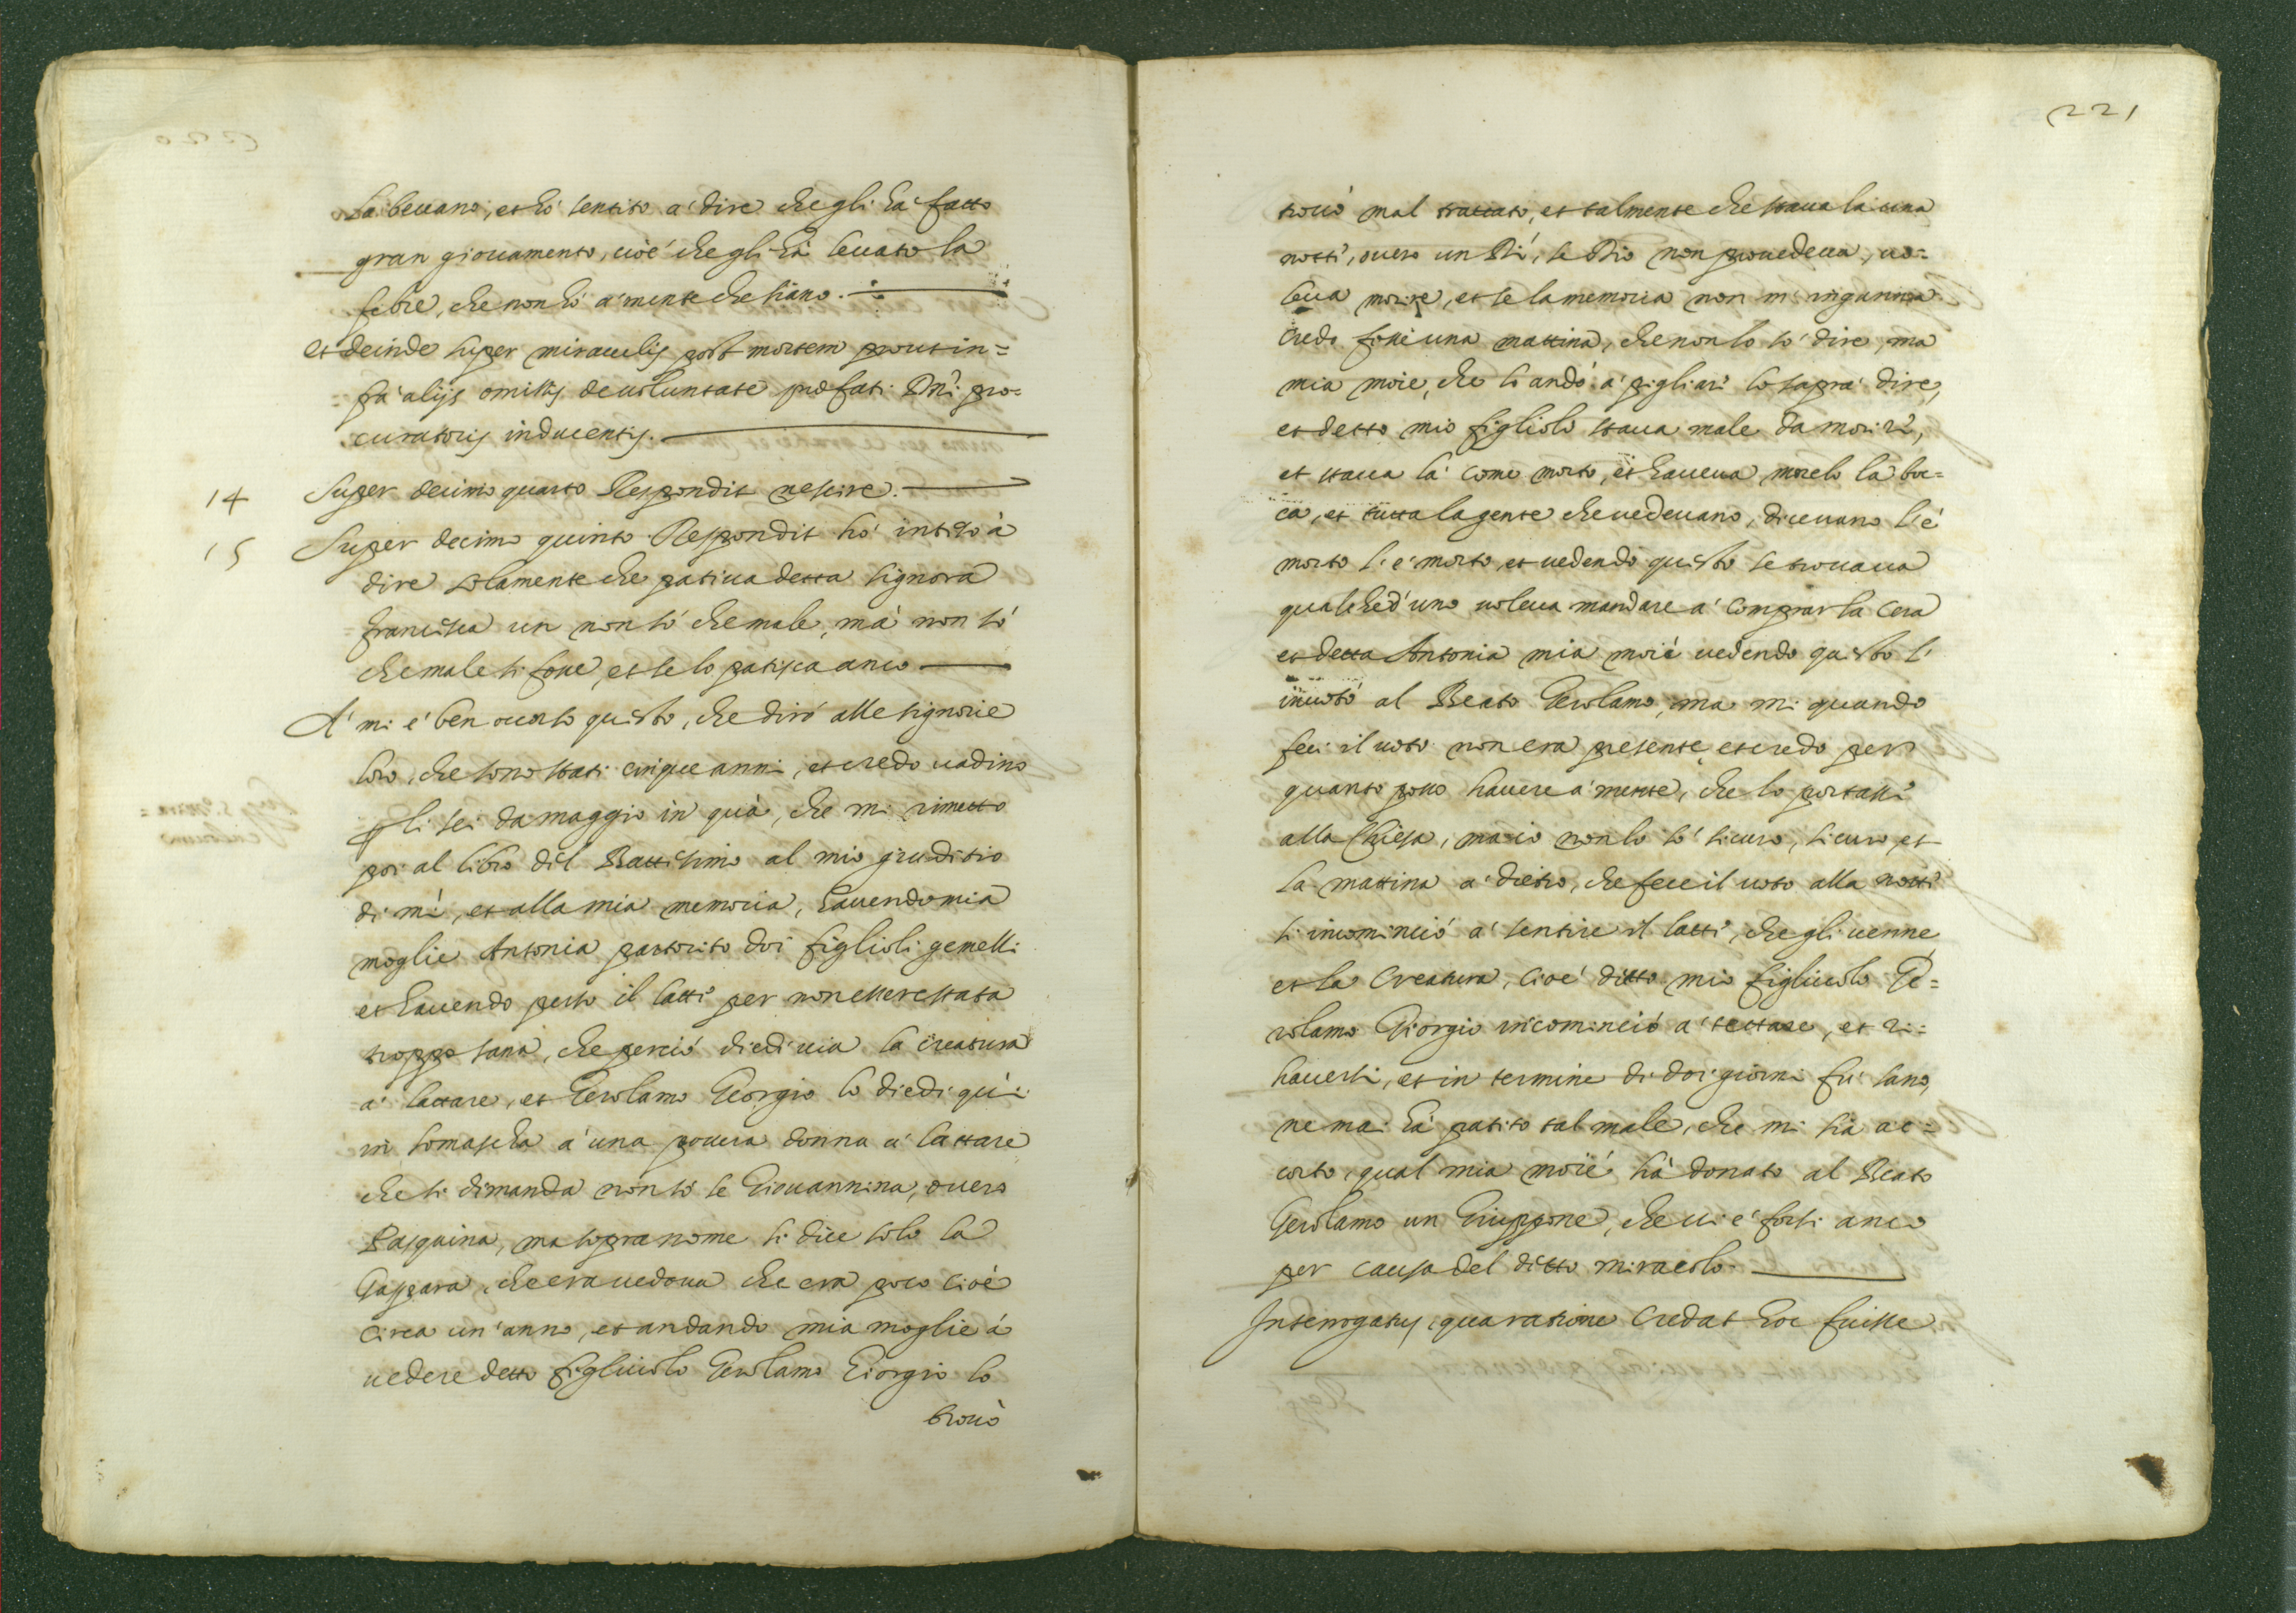 la beuano, et hò sentito a' dire che gli ha' fatto
gran giouamento, cioè che gli hà leuato la
febre, che non hò a' mente che siano.
et deinde super miraculis post mortem prout in=
fra' alijs omissis de uoluntate præfati Dni pro=
curatoris inducentis.
14 Super decimo quarto Respondit nescire.
15 Super decimo quinto Respondit hò inteso à
dire solamente che patiua detta signora
francisca un non sò che male, mà non sò
che male si fosse, et se lo patisca anco
A' mi e' ben occorso questo, che dirò alle signorie
loro, che sono stati cinque anni, et credo uadino
per li sei da maggio in quà, che mi rimetto
poi al libro dil Battesimo al mio giuditio
di mì, et alla mia memoria, hauendo mia
moglie Antonia partorito doi figlioli gemelli
et hauendo perso il latti per non essere stata
troppo sana, che perciò diedi uia la creatura
a' lattare, et Gerolamo Georgio lo diedi quì
in somascha a' una pouera donna a' lattare
che si dimanda non sò se Giouannina, ouero
Pasquina, ma sopra nome si dice solo la
Gaspara, che era uedoua che era poco cioè
circa un' anno, et andando mia moglie à
uedere detto figliuolo Gerolamo Giorgio lo
trouò
221
trouò mal trattato, et talmente che staua la una
notti, ouero un Dì, se Dio non prouedeua, uo=
leua morire, et se la memoria non m' inganna
credo fosse una mattina, che non lo sò dire, ma
mia moie, che li andò a' pigliare lo saprà dire,
et detto mio figliolo staua male da morire,
et staua là come morto, et haueua morelo la boc=
ca, et tutta la gente che uedeuano, diceuano l' è
morto l' è morto, et uedendo questo se trouaua
qualched'uno uoleua mandare a' comprar la cera
et detta Antonia mia moiè uedendo questo l'
inuotò al Beato Gerolamo, ma mi quando
feci il uoto non era presente, et credo per
quanto posso hauere a' mente, che lo portasse
alla Chiesa, ma io non lo sò sicuro, sicuro, et
la mattina a' dietro, che fece il uoto alla notti
si incominciò a' sentire il latti, che gli uenne
et la creatura, cioè ditto mio figliuolo Ge=
rolamo Giorgio incominciò a' tettare, et ri=
hauersi, et in termine di doi giorni fu' sano,
ne mai hà patito tal male, che mi sia ac=
corto, qual mia moiè hà donato al Beato
Gerolamo un Giuppone, che ui e' forsi anco
per causa del ditto miracolo.
Interrogatus, qua ratione credat hoc fuisse